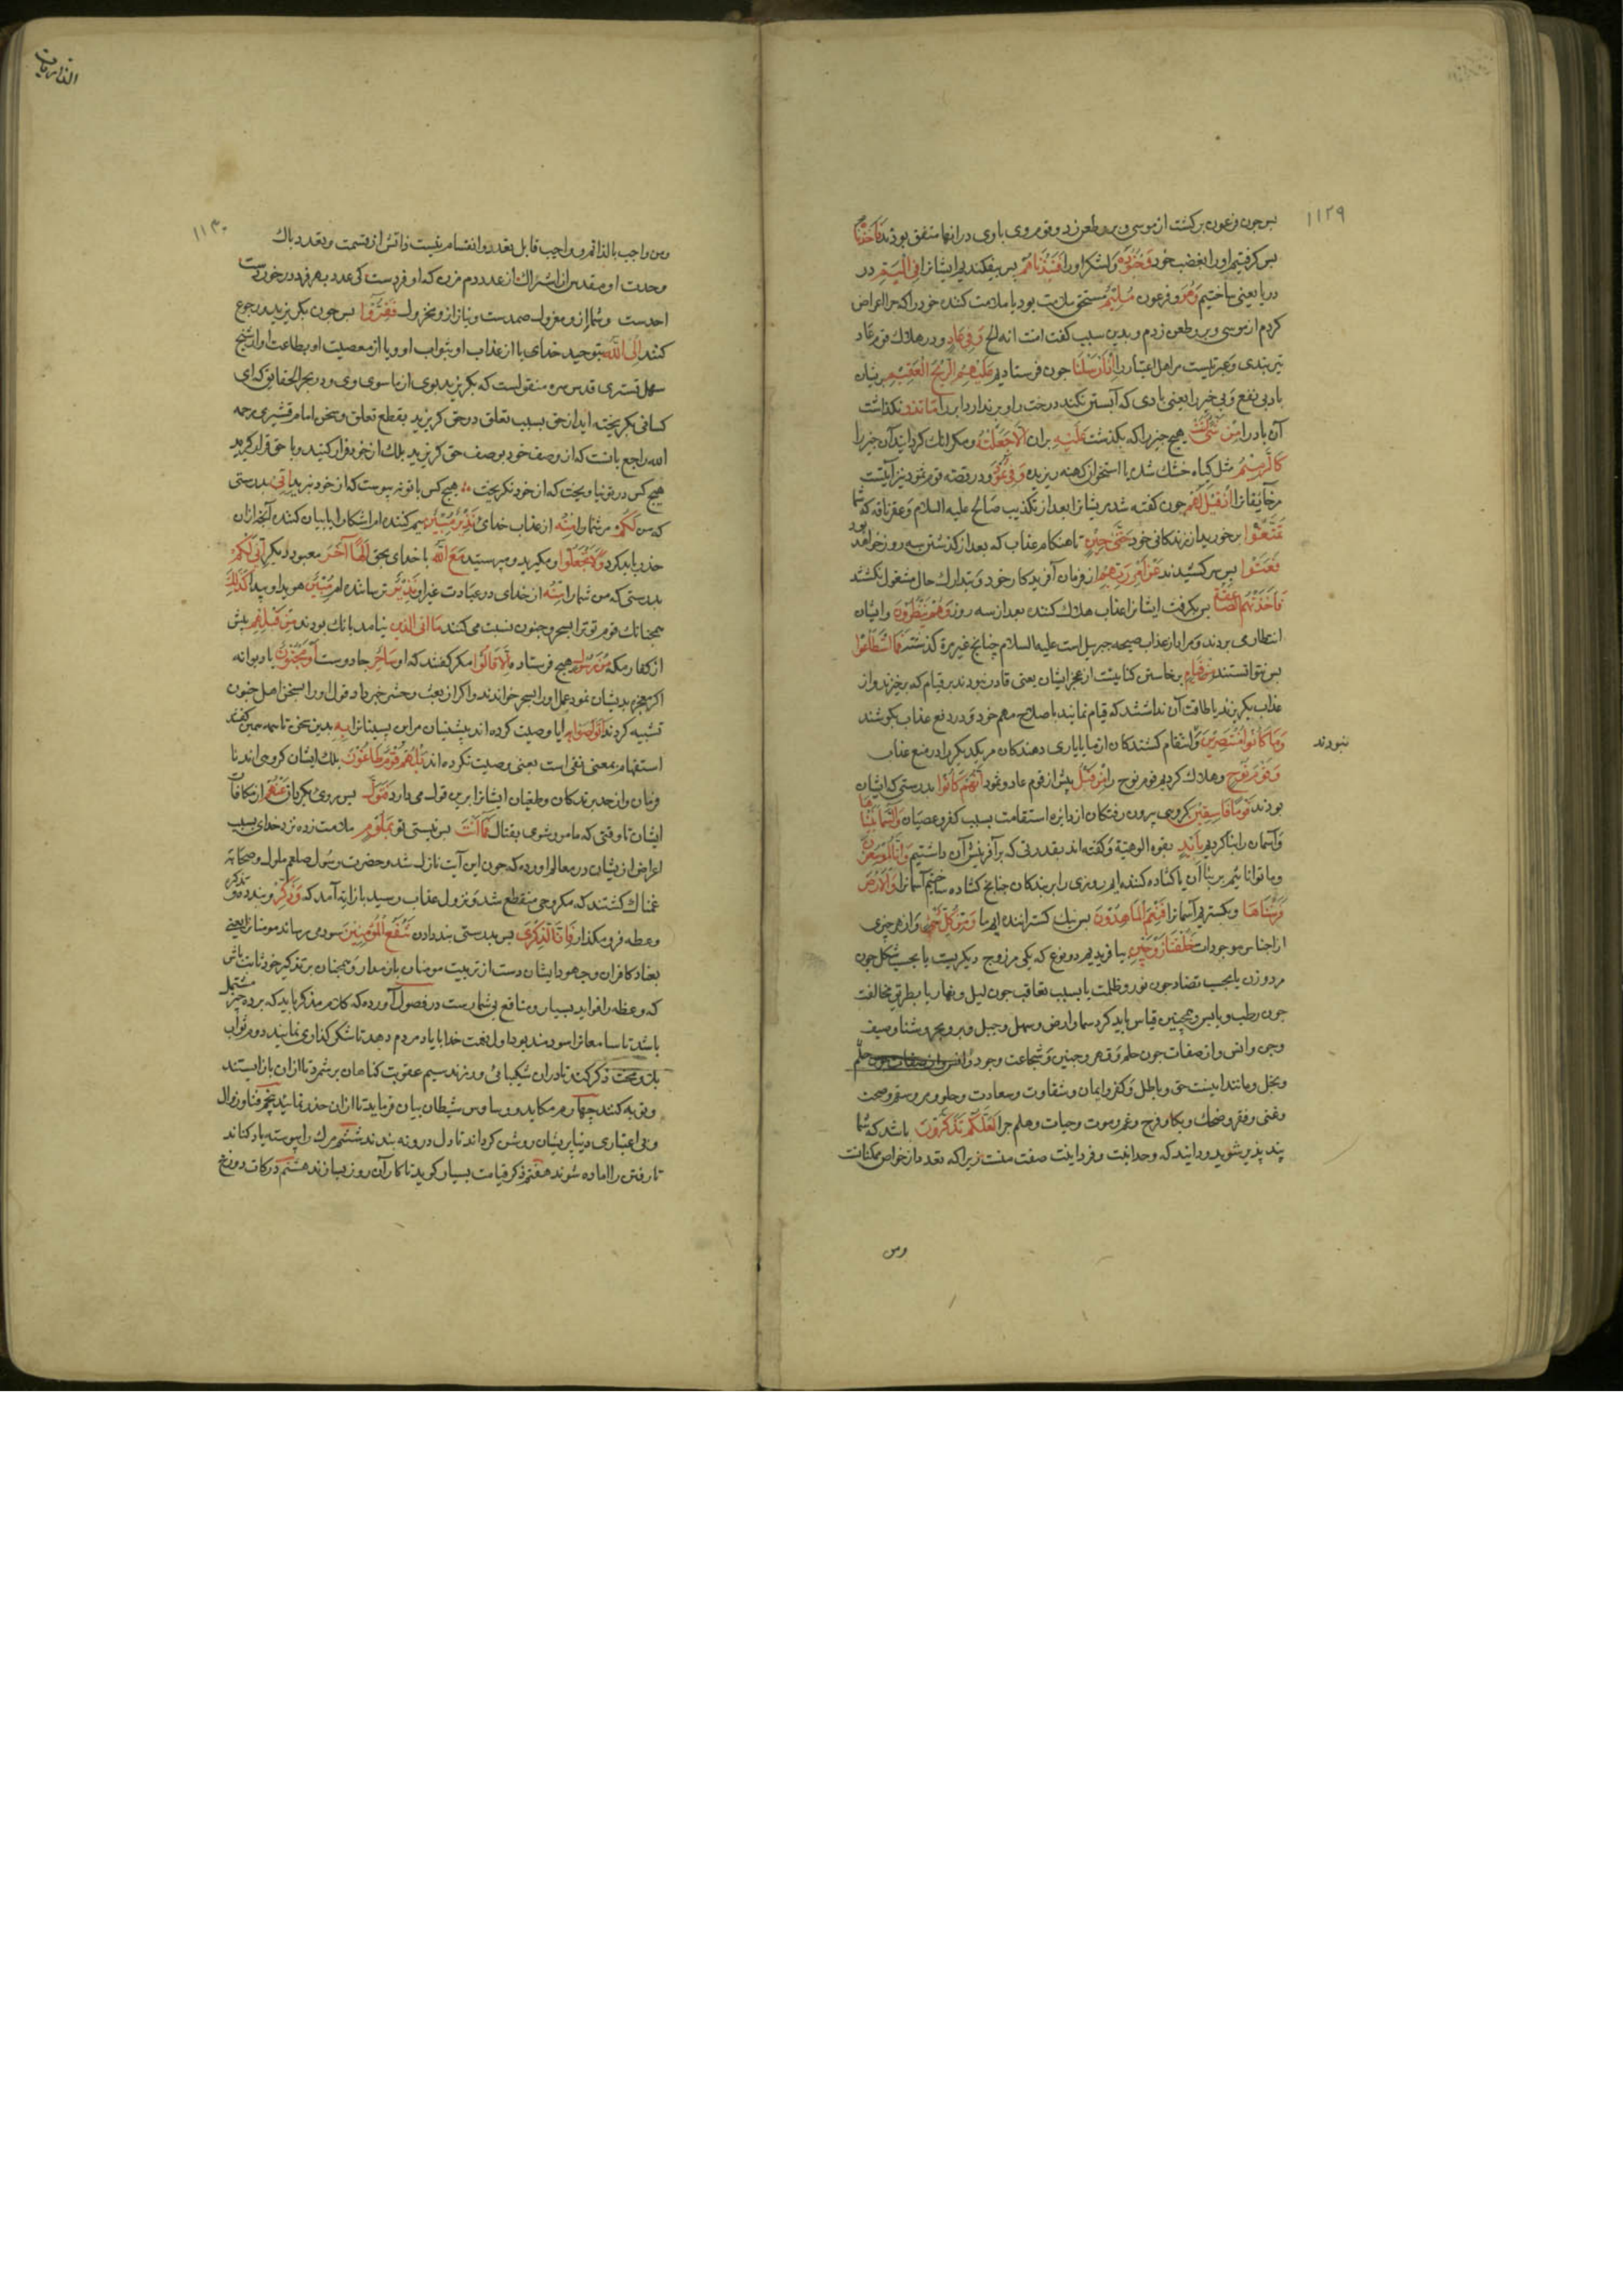 ١١٢٩
پس چون فرعون برکشت از موسی و بروطعن زد و قوم وی با وی درانها متفق بودند فَأَخَذْنَاهُ
پس کرفتیم اورا بغضب خود وَجُنُودَهُ ولشکر اورا فَنَبَذْنَاهُمْ پس بیفکندیم ایشانرا فِی الْیَمِّ در
دریا یعنی ساختیم وَهُوَ و فرعون مُلِیمٌ مستحق ملامت بود یا ملامت کننده خود را که چرا اعراض
کردم از موسی و برو طعن زدم و بدین سبب کفت امنت انه الخ وَفِی عَادٍ و در هلاک قوم عاد
نیز پندی و عبرتیست مر اهل اعتبار را إِذْ أَرْسَلْنَا چون فرستادیم عَلَیْهِمُ الرِّیحَ الْعَقِیمَ بریشان
باد بی نفع و بی خیر را یعنی بادی که آبستن نکند درخت را و برندارد ابر را مَا تَذَرُ نکذاشت
آن باد را مِنْ شَیْءٍ أَتَتْ هیچ چیز را که بکذشت عَلَیْهِ بران إِلَّا جَعَلَتْهُ و مکر انک کردانید آن چیز را
کَالرَّمِیمِ مثل کیاه خشک شده یا استخوان کهنه ریزیده وَفِی ثَمُودَ و در قصه قوم ثمود نیز آیتیست
مر خایفانرا إِذْ قِیلَ لَهُمْ چون کفته شد مریشانرا بعد از تکذیب صالح علیه السلام و عقر ناقه که شما
تَمَتَّعُوا برخورید از زندکانی خود حَتَّی حِینٍ تا هنکام عذاب که بعد از کذشتن سه روز خواهد بود
فَعَتَوْا پس سر کشیدند عَنْ أَمْرِ رَبِّهِمْ از فرمان آفریدکار خود و بتدارک حال مشغول نکشتند
فَأَخَذَتْهُمُ الصَّاعِقَةُ پس بکرفت ایشانرا عذاب هلاک کننده بعد از سه روز وَهُمْ یَنْظُرُونَ و ایشان
انتظار می بردند و مراد از عذاب صیحه جبریل است علیه السلام چنانچ غیر مرة کذشت فَمَا اسْتَطَاعُوا
پس نتوانستند مِنْ قِیَامٍ برخاستن کنایتست از عجز ایشان یعنی قادر نبودند بر قیام که برخیزند و از
عذاب بکریزند یا طاقت آن نداشتند که قیام نمایند باصلاح مهم خود و در دفع عذاب بکوشند
وَمَا کَانُوا مُنْتَصِرِینَ و انتقام کشندکان از ما یا یاری دهندکان مر یکدیکر را در منع عذاب
نبودند
وَقَوْمَ نُوحٍ و هلاک کردیم قوم نوح را مِنْ قَبْلُ پیش از قوم عاد و ثمود إِنَّهُمْ کَانُوا بدرستی که ایشان
بودند قَوْمًا فَاسِقِینَ کروهی بیرون رفتکان از دایره استقامت بسبب کفر و عصیان وَالسَّمَاءَ بَنَیْنَاهَا
و آسمان را بنا کردیم بِأَیْدٍ بقوه الوهیة و کفته اند بقدرتی که بر آفرینش آن داشتیم وَإِنَّا لَمُوسِعُونَ
و ما توانائیم بر بناء آن یا کشاده کننده ایم روزی را بر بندکان چنانچ کشاده ساختیم آسمانرا وَالْأَرْضَ
فَرَشْنَاهَا و بکستردیم آسمانرا فَنِعْمَ الْمَاهِدُونَ پس نیک کستراننده ایم ما وَمِنْ کُلِّ شَیْءٍ و از هر چیزی
از اجناس موجودات خَلَقْنَا زَوْجَیْنِ بیافریدیم دو نوع که یکی مر زوج دیکریست یا بحسب شکل چون
مرد و زن یا بحسب تضاد چون نور و ظلمت یا بسبب تعاقب چون لیل و نهار یا بطریق مخالفت
چون رطب و یابس و همچنین قیاس باید کرد سما و ارض و سهل و جبل و بر و بحر و شتا و صیف
و جن و انس و از صفات چون حلم و قهر و جبن و شجاعت و جود
و بخل و مانند اینست حق و باطل و کفر و ایمان و شقاوت و سعادت و حلو و مر و سقم و صحت
و غنی و فقر و ضحک و بکا و فرح و غم و موت و حیات و هلم جرا لَعَلَّکُمْ تَذَکَّرُونَ باشد که شما
پند پذیر شوید و دانید که وحدانیت و فردانیت صفت منست زیرا که تعدد از خواص ممکنات
ومن
الذاریات
١١٣٠
ومن واجب بالذاتم و واجب قابل تعدد و انقسام نیست ذاتش از قسمت و تعدد پاک
وحدت او مقدس از اشتراک از عدد دم مزن که او فردست کی عدد بهر فرد در خوردست
احدست و شمار ازو معزول صمدست و نیاز ازو مخزول فَفِرُّوا پس چون بکریزید و رجوع
کنند إِلَی اللَّهِ بتوحید خدای یا از عذاب او بثواب او و یا از معصیت او بطاعت او از شیخ
سهل تستری قدس سره منقولست که بکریزید بوی از ما سوی وی و در بحر الحقایق که ای
کسانی بکریخته اید از حق بسبب تعلق در حق کریزید بقطع تعلق و سخن امام قشیری رحمه
الله راجع بانست که از وصف خود بوصف حق کریزید بلک از خود فرار کنید و با حق قرار کیرید
هیچ کس در تو نیاویخت که از خود نکریخت هیچ کس با تو نپیوست که از خود نبرید إِنِّی بدرستی
که من لَکُمْ مر شما را مِنْهُ از عذاب خدای نَذِیرٌ مُبِینٌ بیم کننده ام اشکارا یا بیان کننده آنچه ازان
حذر باید کرد وَلَا تَجْعَلُوا و مکیرید و مپرستید مَعَ اللَّهِ با خدای بحق إِلَهًا آخَرَ معبود دیکر إِنِّی لَکُمْ
بدرستی که من شما را مِنْهُ از خدای در عبادت غیر او نَذِیرٌ ترساننده ام مُبِینٌ هویدا و پیدا کَذَلِکَ
همچنانک قوم تو ترا بسحر و جنون نسبت می کنند مَا أَتَی الَّذِینَ نیامد بانک بودند مِنْ قَبْلِهِمْ پیش
از کفار مکه مِنْ رَسُولٍ هیچ فرستاده إِلَّا قَالُوا مکر کفتند که او سَاحِرٌ جادوست أَوْ مَجْنُونٌ یا دیوانه
اکر معجزه بدیشان نمود عمل اورا سحر خواندند و اکر از بعث و حشر خبر داد قول اورا بسخن اهل جنون
تشبیه کردند أَتَوَاصَوْا بِهِ ایا وصیت کرده اند پیشینیان مر این پسینانرا بِهِ بدین سخن تا همه همین کفتند
استفهام بمعنی نفی است یعنی وصیت نکرده اند بَلْ هُمْ قَوْمٌ طَاغُونَ بلک ایشان کروهی اند نا
فرمان و از حد برندکان و طغیان ایشانرا برین قول می دارد فَتَوَلَّ پس روی بکردان عَنْهُمْ از مکافات
ایشان تا وقتی که مامور شوی بقتال فَمَا أَنْتَ پس نیستی تو بِمَلُومٍ ملامت زده نزد خدای بسبب
اعراض ازیشان در معالم اورده که چون این آیت نازل شد و حضرت رسول صلعم ملول و صحابه
غمناک کشتند که مکر وحی منقطع شد و نزول عذاب رسید باز ایة آمد که وَذَکِّرْ و پند ده و تذکیر
و عظه فرو مکذار فَإِنَّ الذِّکْرَی پس بدرستی پند دادن تَنْفَعُ الْمُؤْمِنِینَ سود می رساند مومنانرا یعنی
بعناد کافران و جهود ایشان دست از تربیت مومنان باز مدار و همچنان بر تذکیر خود ثابت باش
که وعظه را فواید بسیار و منافع بی شمارست در فصول آورده که کلام مذکر باید که بر ده چیز مشتمل
باشد تا سامعانرا سودمند بود اول نعمت خدا بایاد مردم دهد تا شکر کذاری نمایند دوم ثواب
بلا و محنت ذکر کند تا دران شکیبائی ورزند سیم عقوبت کناهان بر شمرد تا ازان باز ایستند
و توبه کنند چهارم مکاید و وساوس شیطان بیان فرماید تا ازان حذر نمایند پنجم فنا و زوال
و بی اعتباری دنیا بریشان روشن کرداند تا دل درو نه بندند ششم مرک را پیوسته یاد کناند
تا رفتن را اماده شوند هفتم ذکر قیامت بسیار کوید تا کار آن روز بسازند هشتم درکات دوزخ